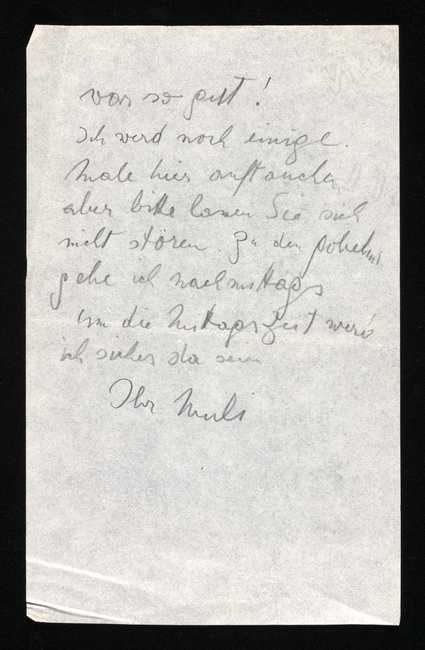 war so gut!
Ich werd noch einige
Male hier auftauchen,
aber bitte lassen Sie sich
nicht stören. Zu den
gehe ich nachmittags
Um die Mittagszeit werd
ich sicher da sein
Ihr